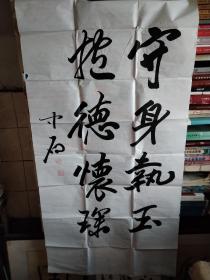 守身執玉
抱德懷琛
中石